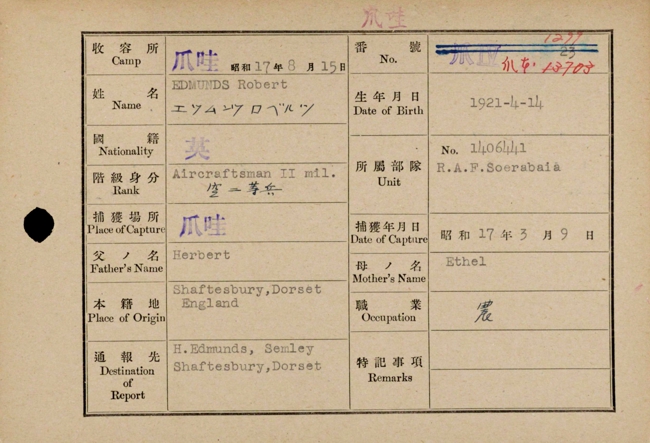 爪哇
收容所 Camp
爪哇 昭和17年8月15日
番號 No.
1299
23
爪本. 13703
姓名 Name
EDMUNDS Robert
エツムンヅ ロベルツ
生年月日 Date of Birth
1921-4-14
國籍 Nationality
英
所屬部隊 Unit
No. 1406441
R.A.F.Soerabaia
階級身分 Rank
Aircraftsman II mil.
空二等兵
捕獲場所 Place of Capture
爪哇
捕獲年月日 Date of Capture
昭和 17年 3月 9日
父ノ名 Father's Name
Herbert
母ノ名 Mother's Name
Ethel
本籍地 Place of Origin
Shaftesbury,Dorset
England
職業 Occupation
農
通報先 Destination of Report
H.Edmunds, Semley
Shaftesbury,Dorset
特記事項 Remarks